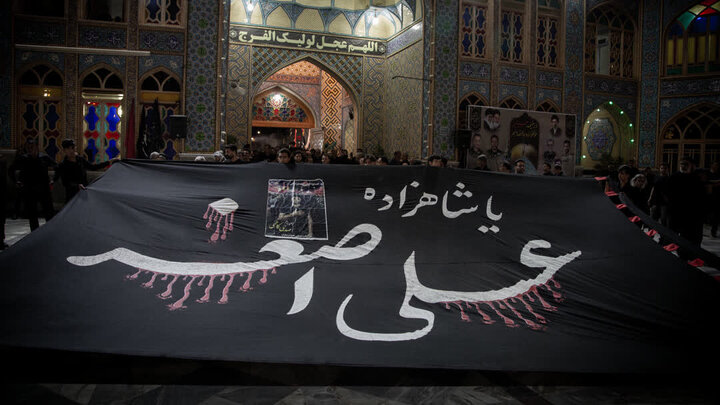 اللهم عجل لولیک الفرج
یا شاهزاده
علی اصغر